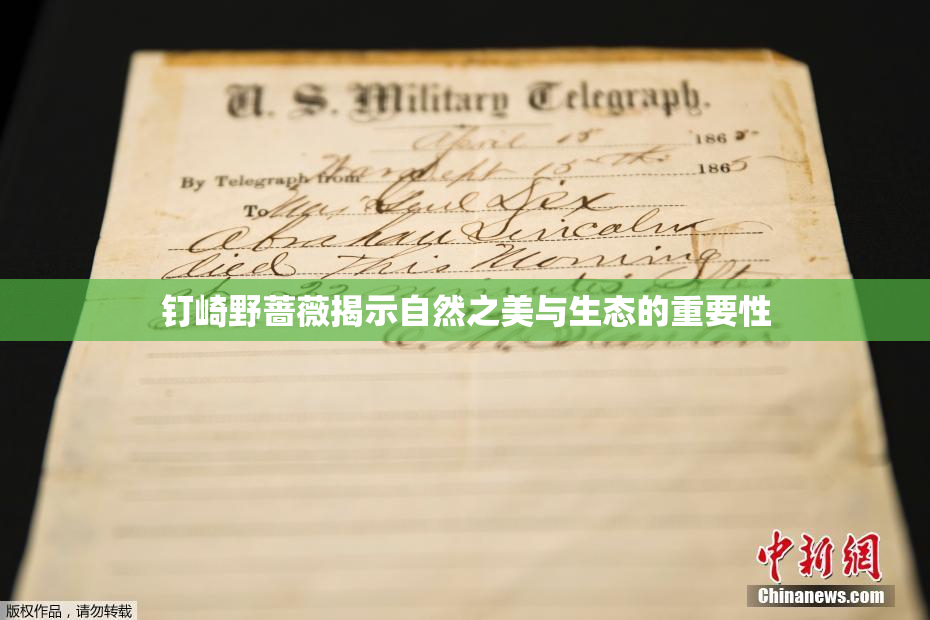 U. S. Military Telegraph.
April 15 1865
By Telegraph from War Dept 15th 1865
To Maj Genl Dix
Abraham Lincoln
died This Morning
at 22 minutes after
钉崎野蔷薇揭示自然之美与生态的重要性
E. M. Stanton
中新网
Chinanews.com
版权作品,请勿转载